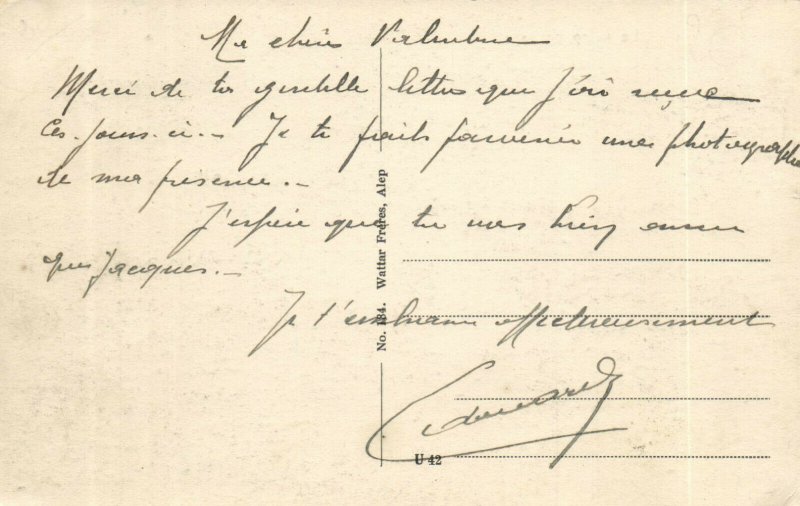 Ma chère Valentine
Merci de ta gentille lettre que j'ai reçue
ces jours-ci.- Je te fais parvenir une photographie
de ma présence.-
J'espère que tu vas bien ainsi
que Jacques.-
Je t'embrasse affectueusement
Edouard
No. 184. Wattar Frères, Alep
U 42